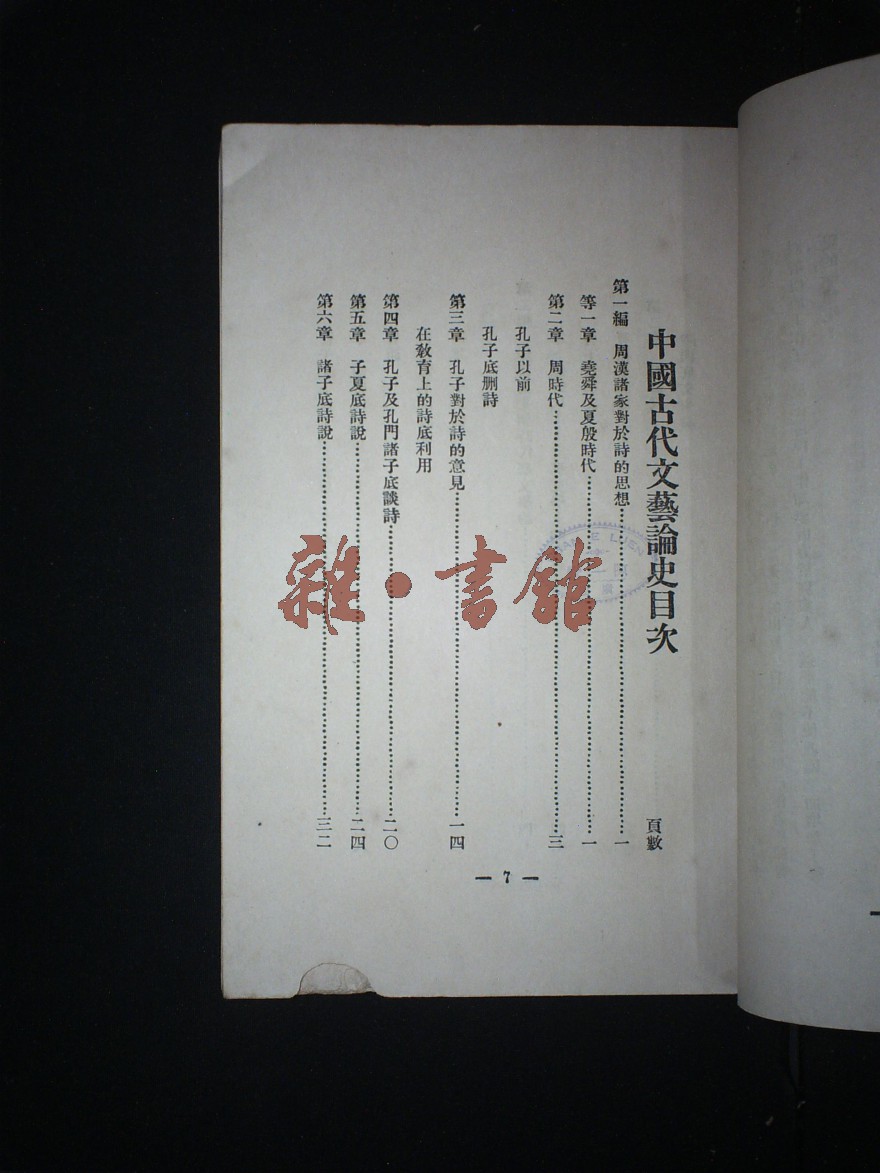 中國古代文藝論史目次
頁數
第一編 周漢諸家對於詩的思想……一
等一章 堯舜及夏殷時代……一
第二章 周時代……三
孔子以前
孔子底刪詩
第三章 孔子對於詩的意見……一四
在敎育上的詩底利用
第四章 孔子及孔門諸子底談詩……二〇
第五章 子夏底詩說……二四
第六章 諸子底詩說……三二
— 7 —
雜·書館